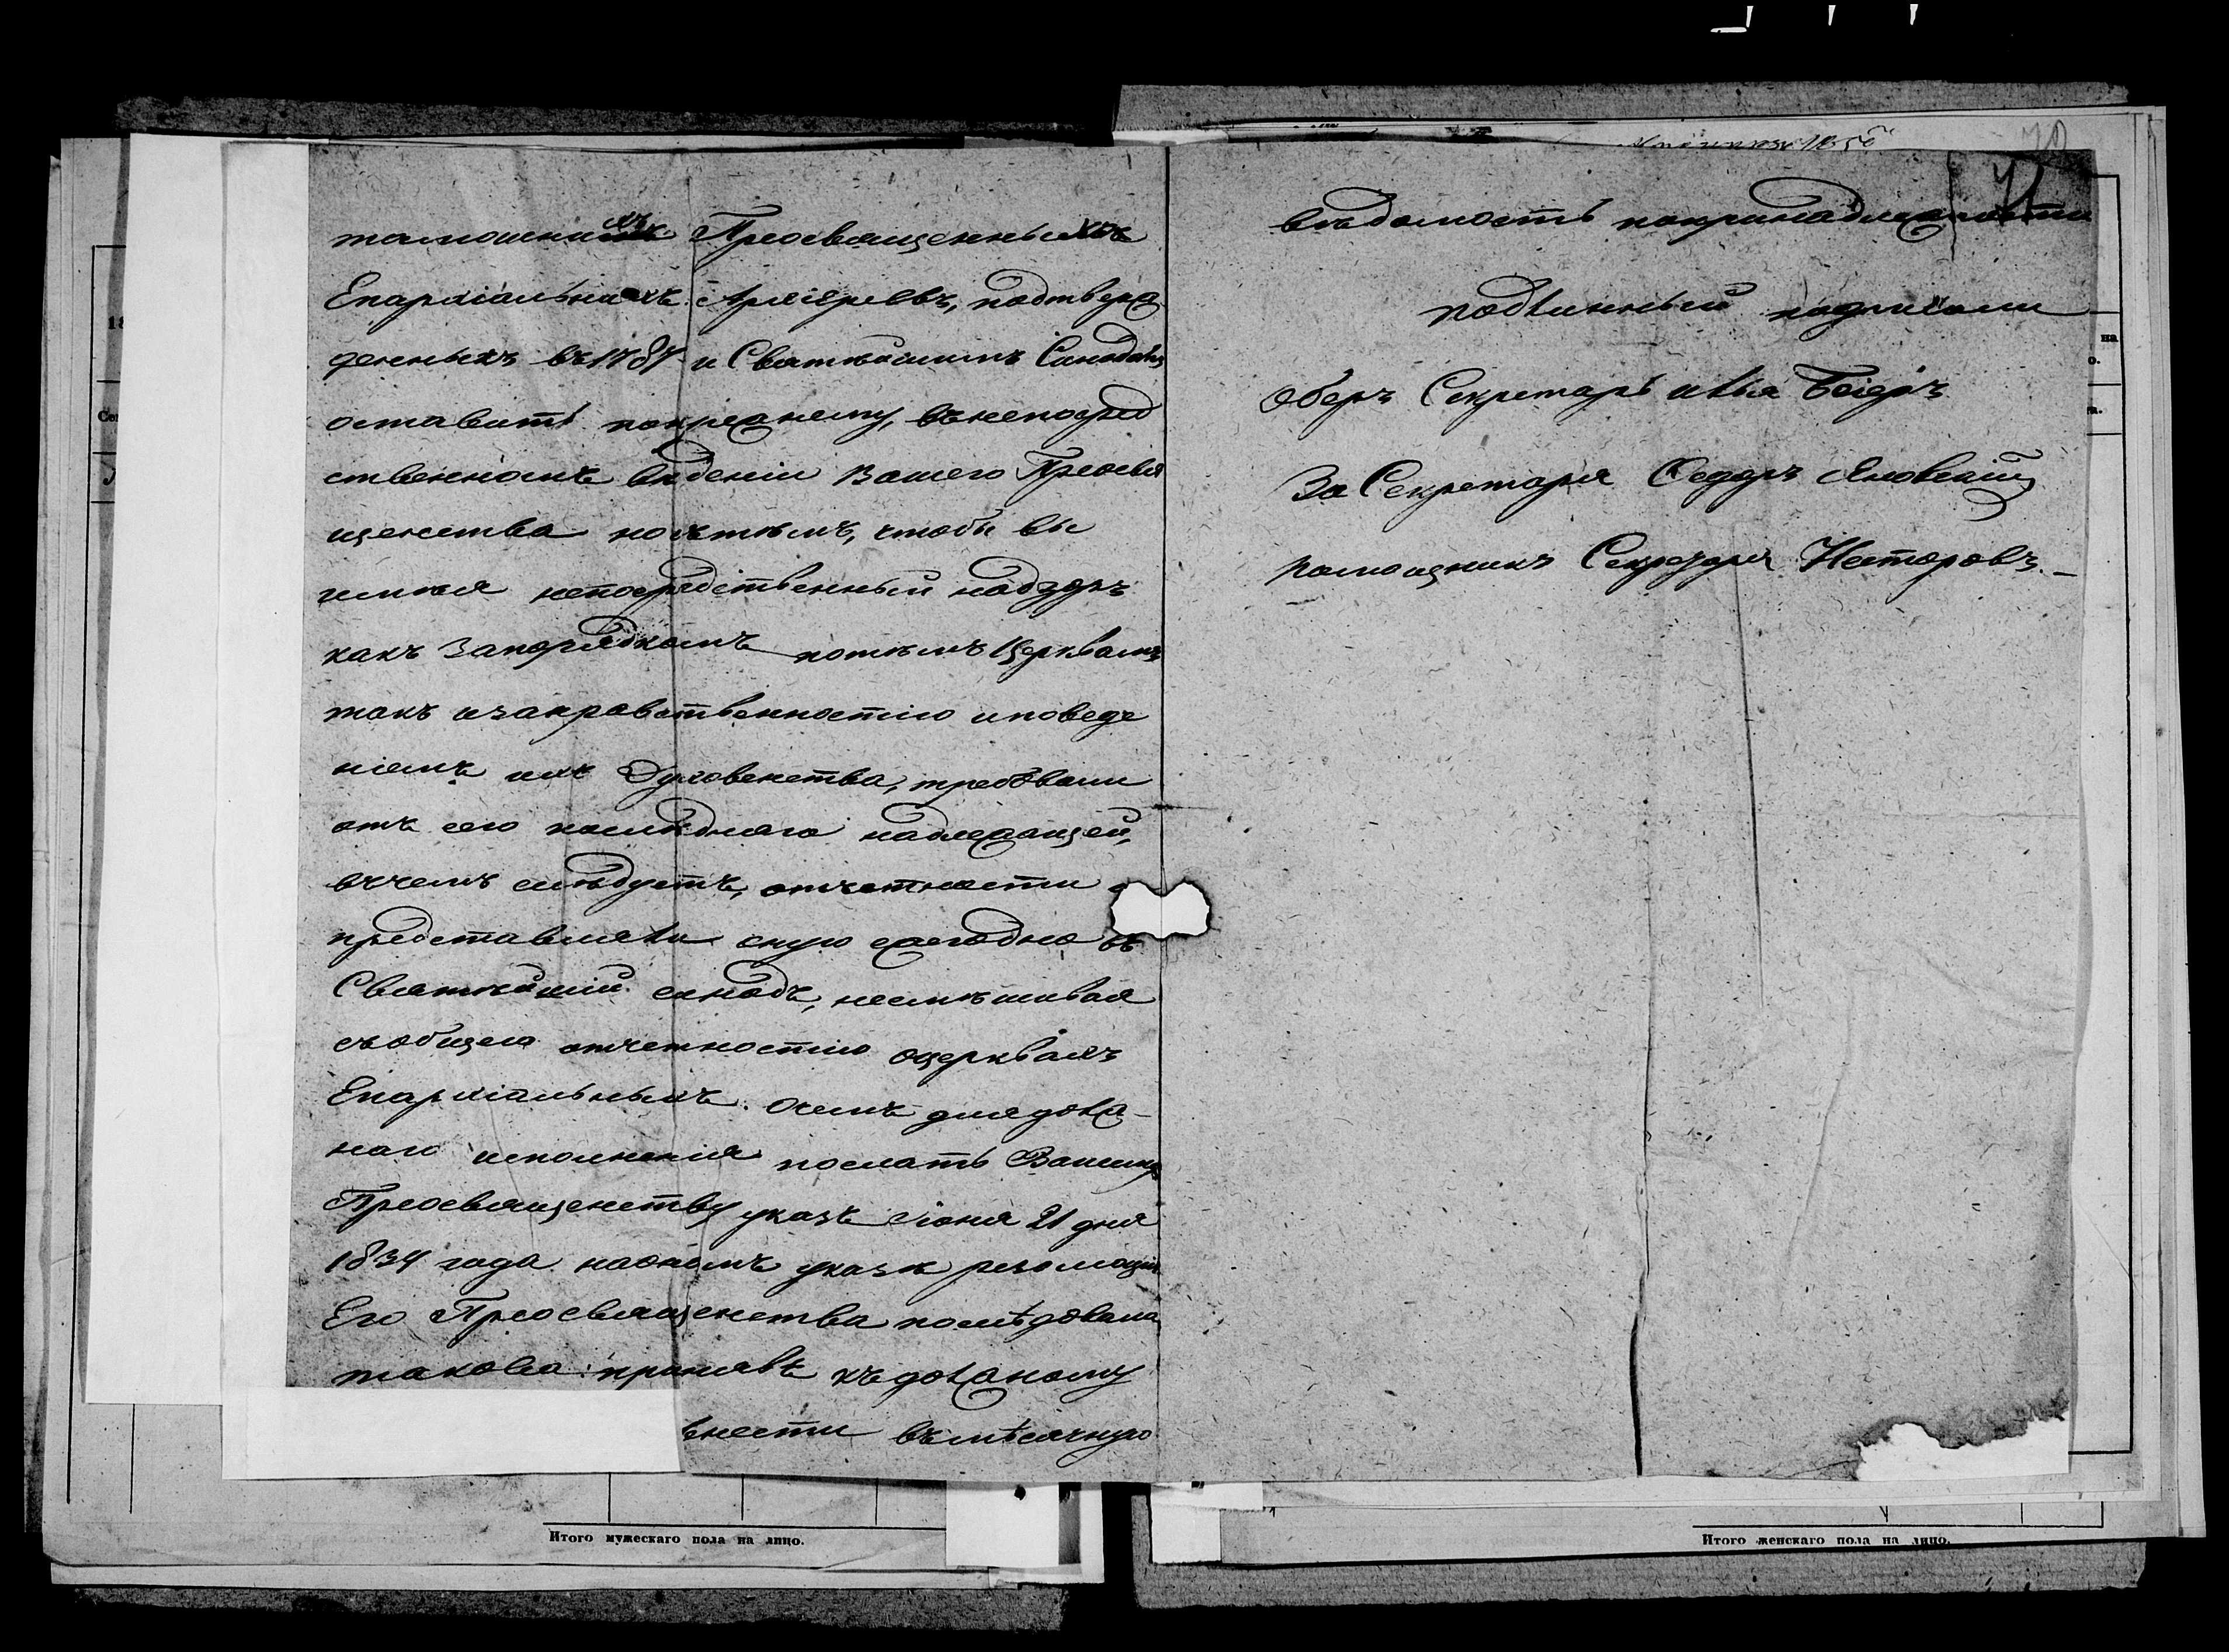 тамошнихъ Преосвященныхъ
Епархіальныхъ Архіереевъ, подтверж
денныхъ въ 1787 и Святѣйшимъ Синодомъ
оставить попрежнему, въ непосред
ственномъ вѣденіи Вашего Преосвя
щенства но съ тѣмъ, чтобы вы
имѣя непосредственный надзоръ
какъ запорядкомъ потѣмъ Церквамъ
такъ изанравственностію иповеде
ніемъ ихъ Духовенства, требовали
отъ сего послѣдняго надлежащей,
въ чемъ слѣдуетъ, отчетности и
представляли оную ежегодно въ
Святѣйшій синодъ, несмѣшивая
съобщею отчетностію оцерквахъ
Епархіальныхъ. Очемъ длядолж-
наго исполненія послать Вашему
Преосвященству указъ Іюня 21 дня
1834 года наономъ указѣ резолюція
Его Преосвященства послѣдовала
такова: принявъ къдолжному
внести въмѣсячную
вѣдомость попринадлежности
подлинный подписали
Оберъ Секретарь Илья
За Секретаря Федоръ Яновскій
помощникъ Секретаря Нестеровъ.
70
Итого мужескаго пола на лицо.
Итого женскаго пола на лицо.